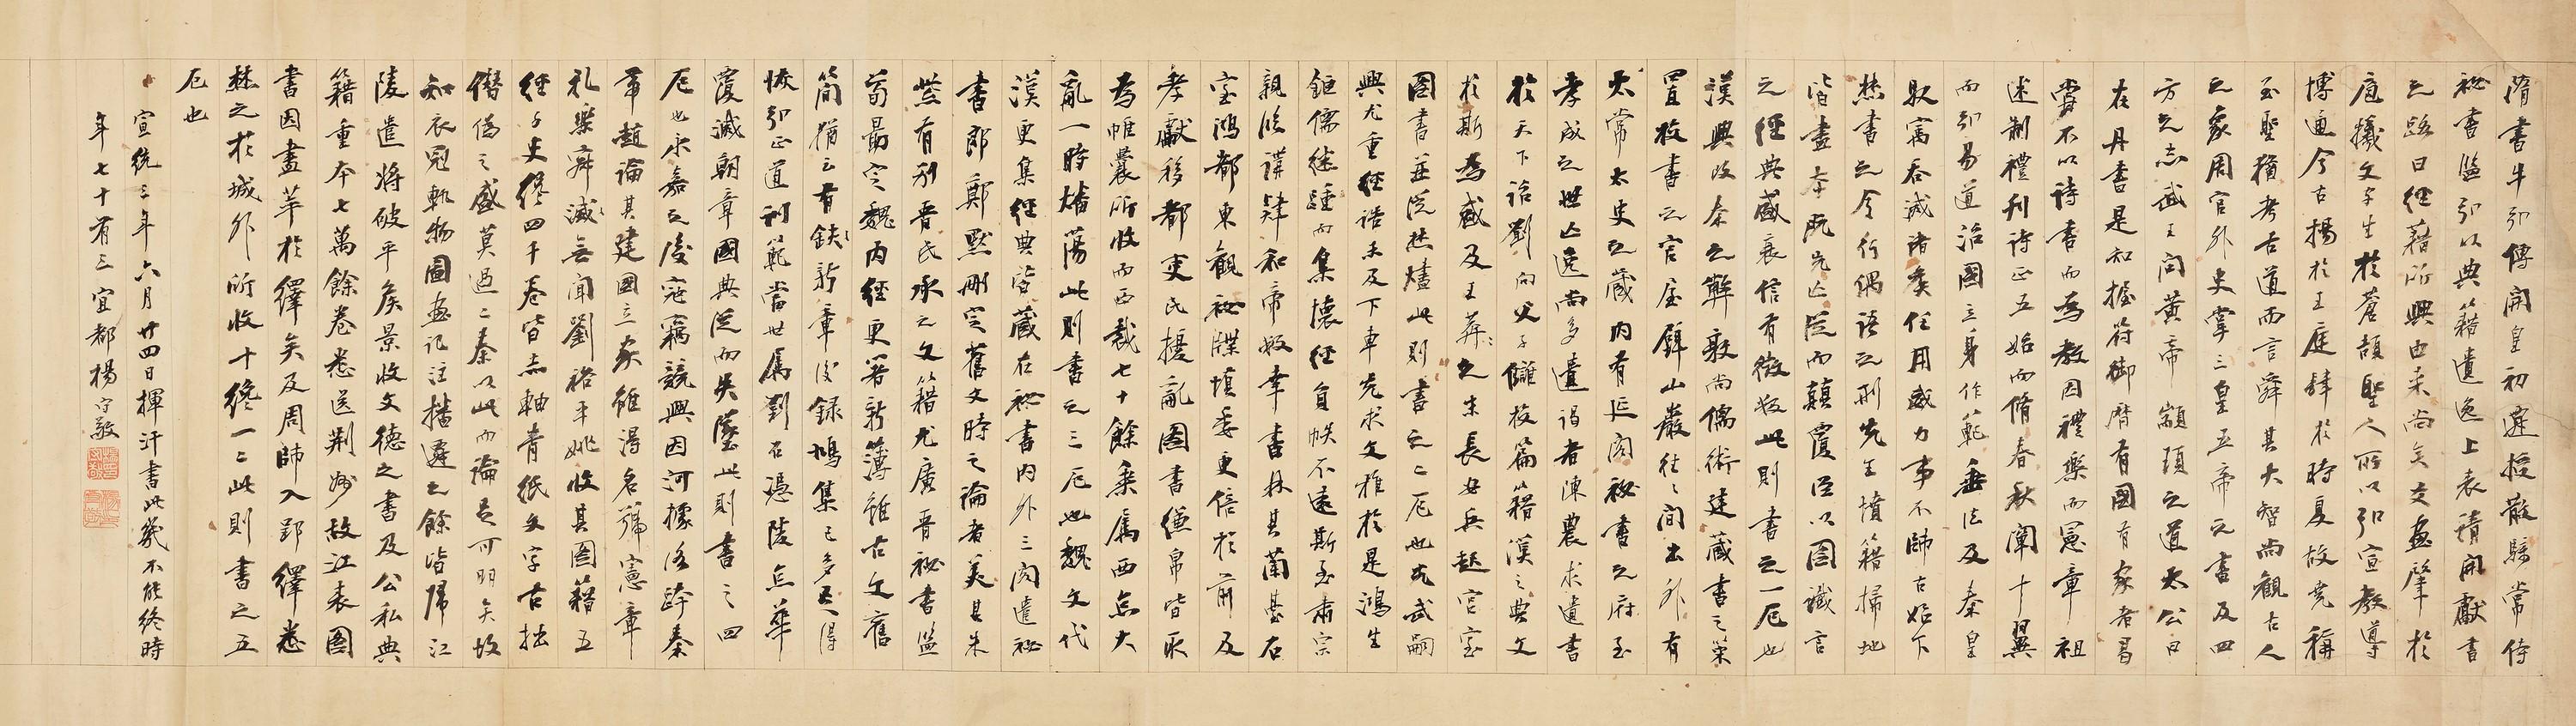 隋書牛弘傳開皇初遷授散騎常侍
秘書監弘以典籍遺逸上表請開獻書
之路曰經籍所興由来尚矣爻畫肇於
庖犧文字生於蒼頡聖人所以弘宣教導
博通今古揚於王庭肆於時夏故堯稱
至聖猶考古道而言舜其大智尚觀古人
之象周官外史掌三皇五帝之書及四
方之志武王問黃帝顓頊之道太公曰
在丹書是知握符御曆有國有家者曷
嘗不以詩書而為教因禮樂而
憲章祖
述制禮刊詩正五始而脩春秋闡十翼
而弘易道治國立身作範垂法及秦皇
馭寓吞滅諸矦任用威力事不師古始下
焚書之令行偶語之刑先王墳籍掃地
皆盡本既先亡從而顛覆臣以圖讖言
之經典盛衰信有徵數此則書之一厄也
漢興改秦之弊敦尚儒術建藏書之策
置校書之官屋壁山巖往〻間出外有
太常太史之藏內有延閣秘書之府至
孝成之世亡逸尚多遣謁者陳農求遺書
於天下詔劉向父子讎校篇籍漢之典文
於斯為盛及王莽之末長安兵起宮室
圖書並從焚燼此則書之二厄也光武嗣
興尤重經誥未及下車先求文雅於是鴻生
鉅儒继踵而集懷經負帙不遠斯至肅宗
親臨講肄和帝數幸書林其蘭臺石
室鴻都東觀秘牒填委更倍於前及
孝獻移都吏民擾亂圖書縑帛皆取
為帷囊所收而西裁七十餘乘属西京大
亂一時燔蕩此則書之三厄也魏文代
漢更集經典皆藏在秘書內外三閣遣秘
書郎鄭默刪定舊文時之論者美其朱
紫有別晋氏承之文籍尤廣晋秘書監
荀勗定魏內經更著新簿雖古文舊
簡猶云有缺新章後錄鳩集已多足得
恢弘正道訓範當世属劉石憑陵京華
覆滅朝章國典從而失墜此則書之四
厄也永嘉之後寇竊競興因河據洛跨秦
帶趙論其建國立家雖得名號憲章
礼樂寂滅無聞劉裕平姚收其圖籍五
經子史纔四千卷皆赤軸青紙文字古拙
僭偽之盛莫過二秦以此而論足可明矣故
知衣冠軌物圖畫記注播遷之餘皆歸江
陵遣將破平矦景收文德之書及公私典
籍重本七萬餘卷悉送荆州故江表圖
書因盡萃於繹矣及周師入郢繹悉
焚之於城外所收十纔一二此則書之五
厄也
宣統三年六月廿四日揮汗書此幾不能終時
年七十有三宜都楊守敬